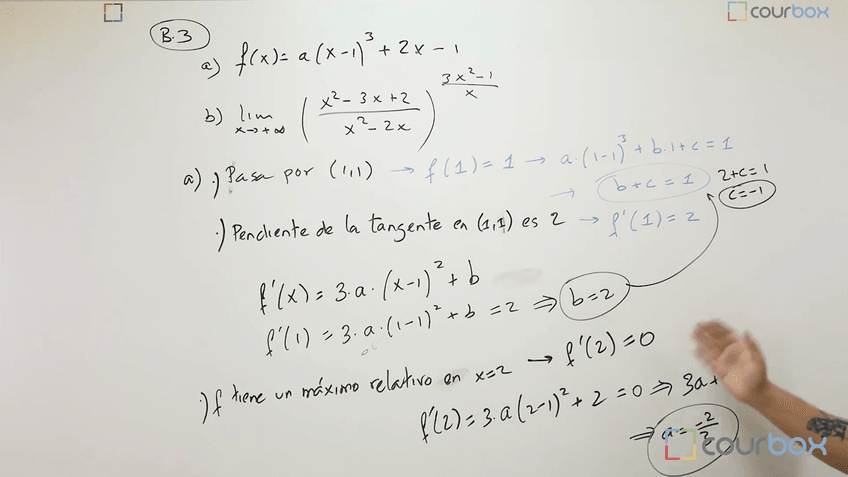 courbox
B.3
a) f(x) = a(x-1)³ + 2x - 1
b) lim x→+∞ ( (x² - 3x + 2) / (x² - 2x) )^((3x² - 1) / x)
a) ·) Pasa por (1,1) → f(1) = 1 → a·(1-1)³ + b·1 + c = 1
→ b+c = 1
2+c=1
c=-1
·) Pendiente de la tangente en (1,1) es 2 → f'(1) = 2
f'(x) = 3·a·(x-1)² + b
f'(1) = 3·a·(1-1)² + b = 2 ⇒ b=2
·) f tiene un máximo relativo en x=2 → f'(2) = 0
f'(2) = 3·a(2-1)² + 2 = 0 ⇒ 3a+
⇒ a = -2/3
courbox